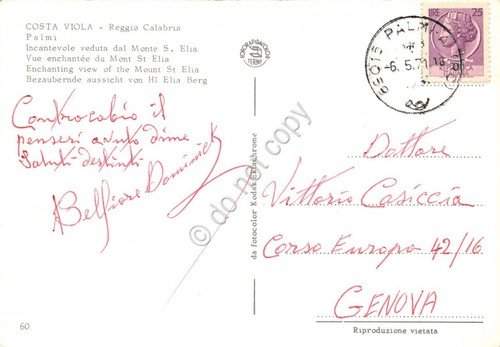 COSTA VIOLA - Reggio Calabria
Palmi
Incantevole veduta dal Monte S. Elia
Vue enchantée du Mont St Elia
Enchanting view of the Mount St Elia
Bezaubernde aussicht von Hl Elia Berg
FOTORAPIDACOLOR
TERNI
25
89015 PALMI
-6.5.71.18
Controcabio il
penseri avuto di me
Saluti destinti
Belfiore Dominick
Dottore
Vittorio Casiccia
Corso Europa 42/16
GENOVA
da fotocolor Kodak Ektachrome
© do not copy
60
Riproduzione vietata